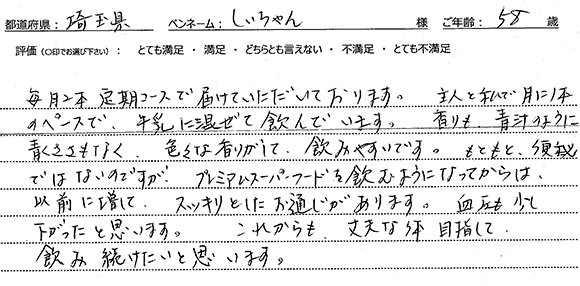 都道府県： 埼玉県 ペンネーム： しぃちゃん 様 ご年齢： 58 歳
評価（○印でお選び下さい）： とても満足 ・ 満足 ・ どちらとも言えない ・ 不満足 ・ とても不満足
毎月2本 定期コースで届けていただいております。 主人と私で月に1本
のペースで、牛乳に混ぜて飲んでいます。 香りも、青汁のように
青くささもなく、色々な香りがして、飲みやすいです。もともと、便秘
ではないのですが、プレミアムスーパーフードを飲むようになってからは、
以前に増して、スッキリとしたお通じがあります。血圧も少し
下がったと思います。 これからも、丈夫な体 目指して、
飲み続けたいと思います。